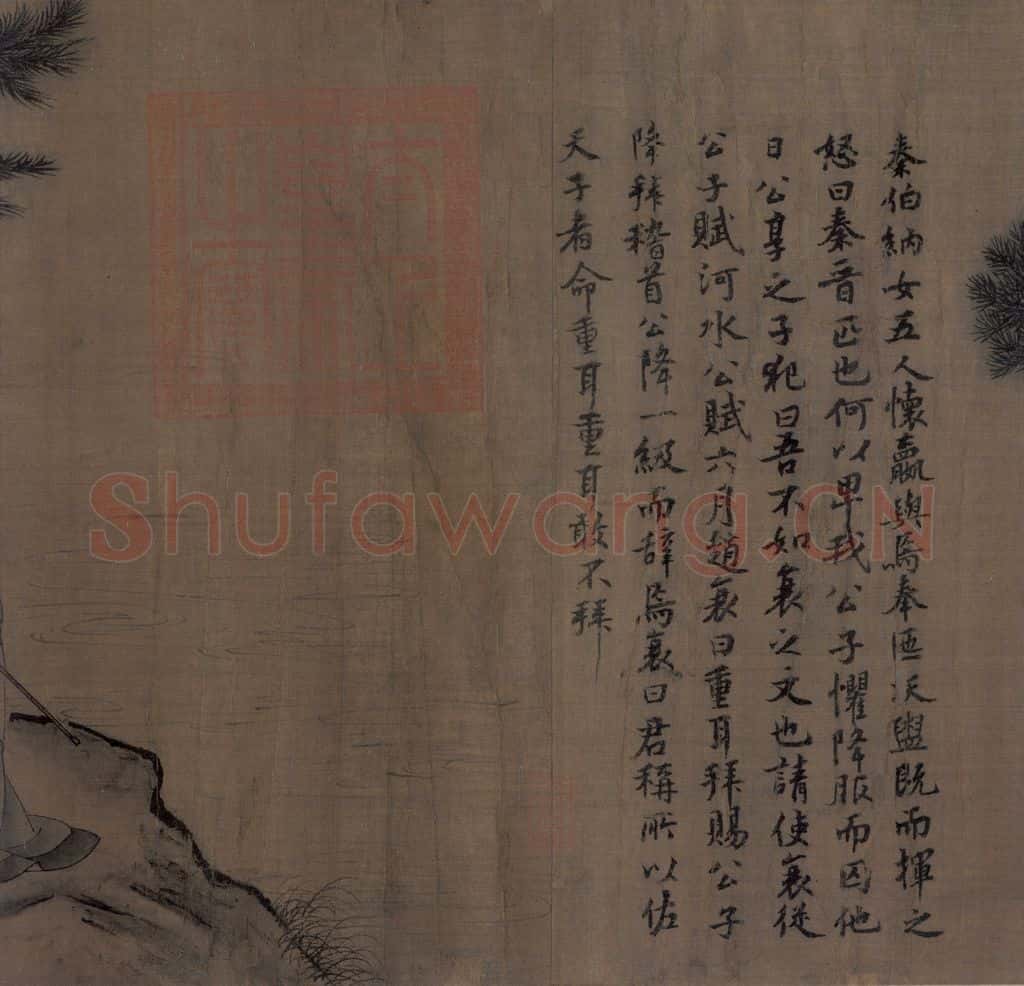 秦伯納女五人懷嬴與焉奉匜沃盥既而揮之
怒曰秦晉匹也何以卑我公子懼降服而囚他
日公享之子犯曰吾不如衰之文也請使衰從
公子賦河水公賦六月趙衰曰重耳拜賜公子
降拜稽首公降一級而辞焉衰曰君稱所以佐
天子者命重耳重耳敢不拜
Shufawang.CN